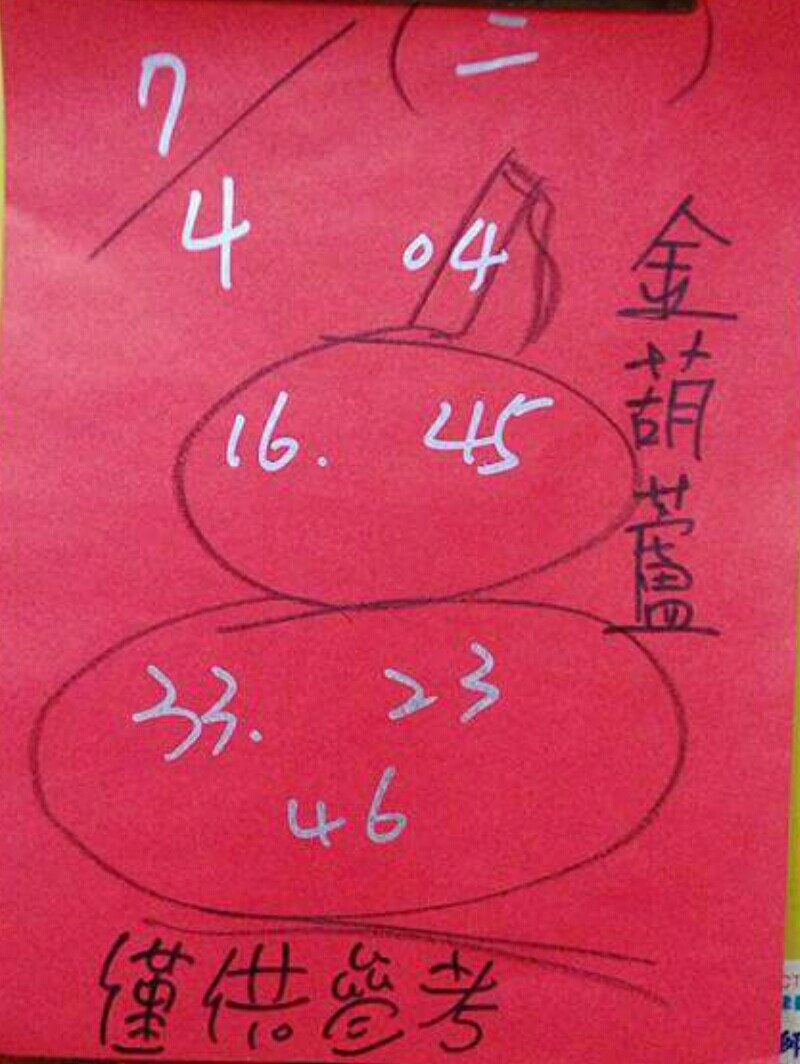 7/4 (二)
04
16. 45
33. 23
46
金葫蘆
僅供參考